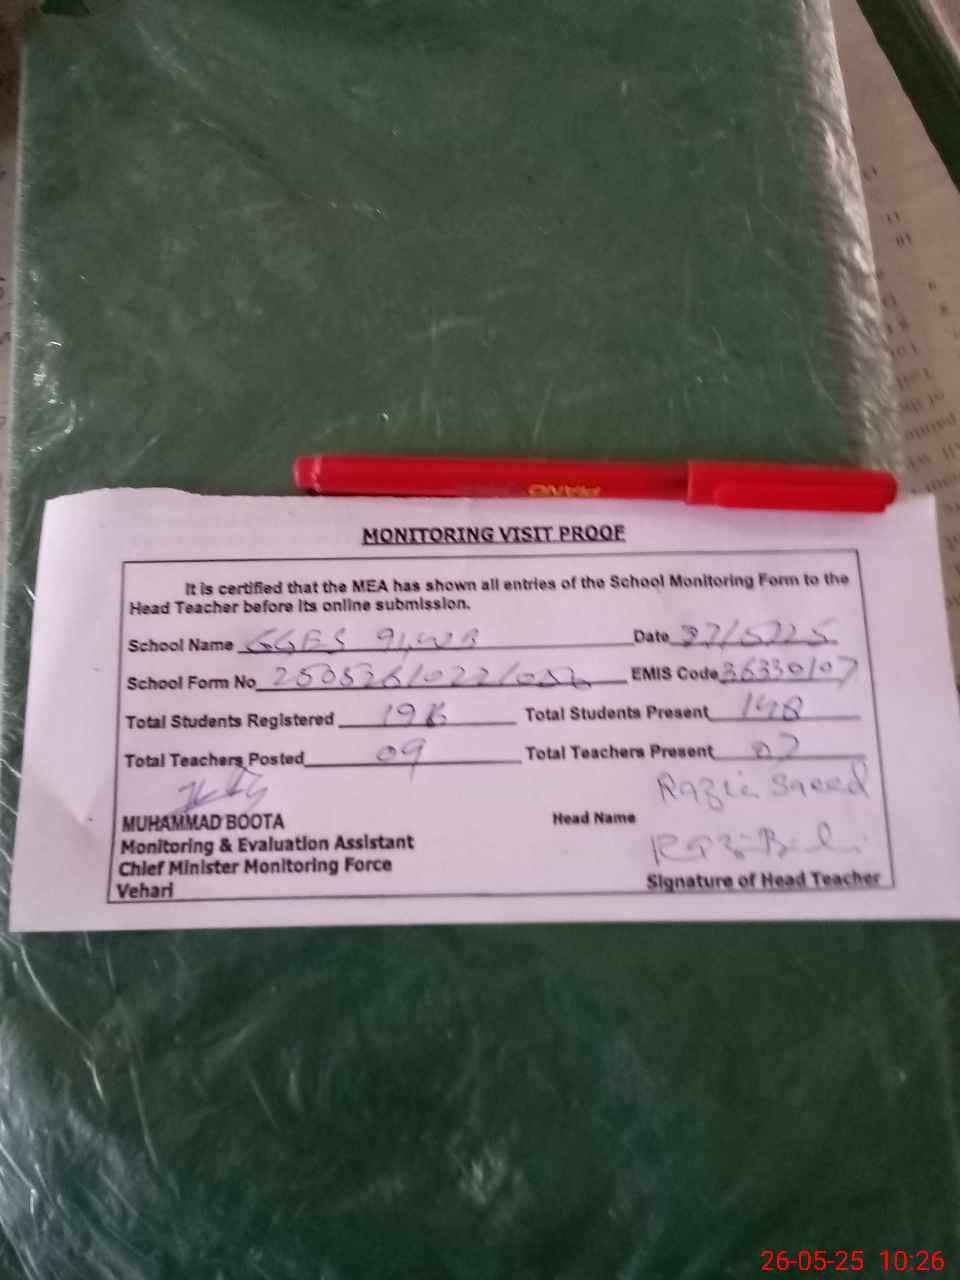 PIANO
MONITORING VISIT PROOF
It is certified that the MEA has shown all entries of the School Monitoring Form to the
Head Teacher before its online submission.
School Name GGES 91/WB Date
School Form No EMIS Code 36330107
Total Students Registered Total Students Present 148
Total Teachers Posted 09 Total Teachers Present 07
Razia Saeed
MUHAMMAD BOOTA Head Name
Monitoring & Evaluation Assistant
Chief Minister Monitoring Force
Vehari Signature of Head Teacher
26-05-25 10:26